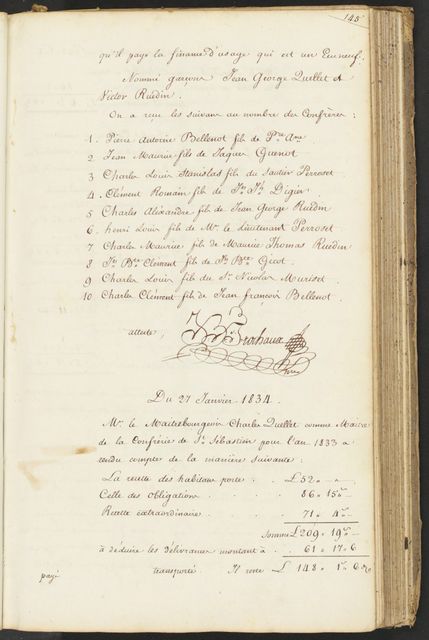 145
qu'il paye la finance d'usage qui est un Ecu neuf.
Nommé garçons Jean George Quellet et
Victor Ruedin.
On a reçu les suivans au nombre des Confrères:
1. Pierre Antoine Bellenot fils de Pre Ane
2 Jean Maurice fils de Jaques Quenot
3 Charles Louis Stanislas fils de Sautier Perroset
4. Clément Romain fils de Jn Jh Digier
5 Charles Alexandre fils de Jean George Ruedin
6. henri Louis fils de Mr. le Lieutenant Perroset
7 Charles Maurice fils de Maurice Thomas Ruedin
8 Jn Bte Clement fils de Jn Bte Gicot.
9 Charles Louis fils du Sr Nicolas Muriset
10 Charles Clement fils de Jean françois Bellenot.
atteste,
Du 27 Janvier 1834.
Mr. le Maitrebourgeois Charles Quellet comme Maitre
de la Confrérie de St. Sébastien pour l'an 1833 a
rendu compte de la manière suivante:
La recette des habitans porte . £ 52 " "
Celle des obligations . . . 86 " 15 "
Recette extraordinaire . . . 71 " 4 "
Somme £ 209 " 19 "
à déduire les délivrances montant à . 61 " 17 " 6
payé transporté Il reste £ 148 " 1 " 6